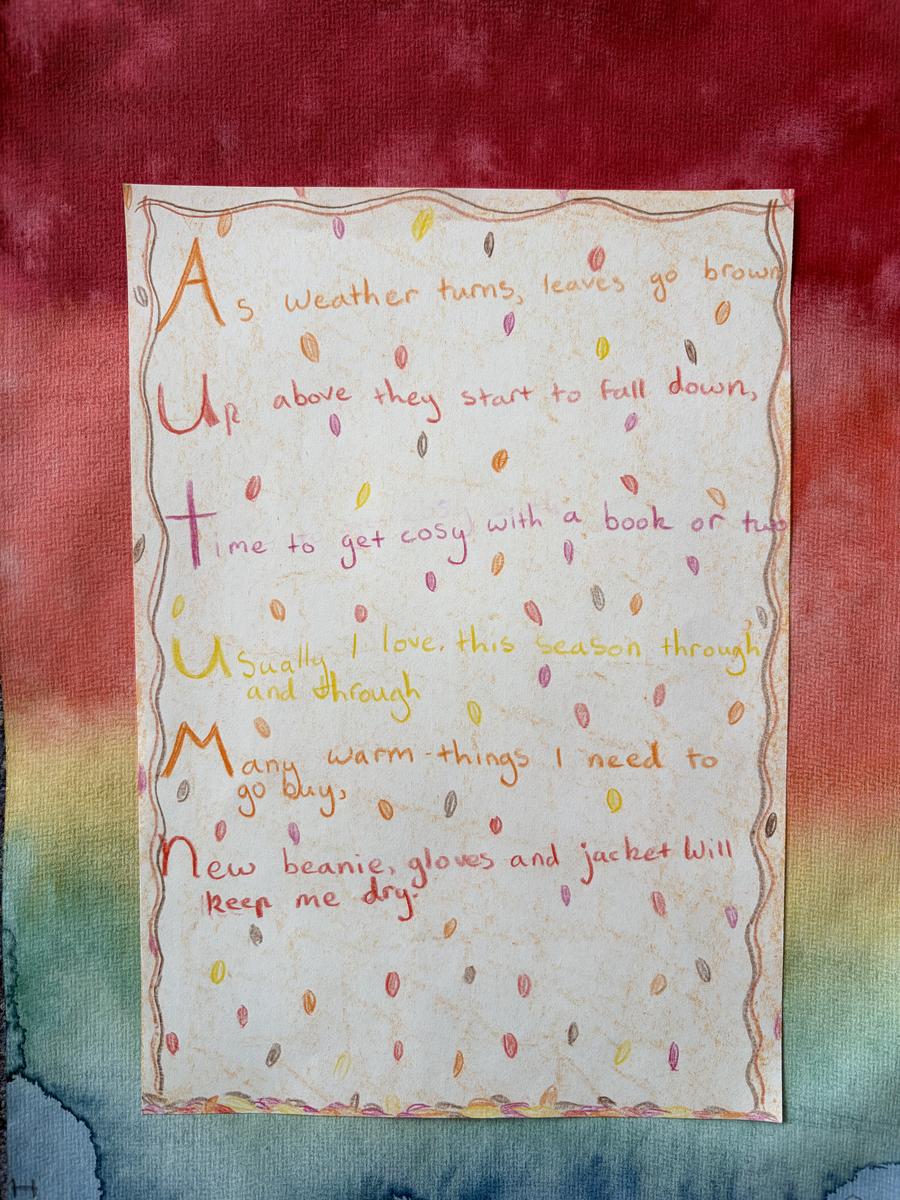 As weather turns, leaves go brown
Up above they start to fall down,
time to get cosy with a book or two
Usually I love. this season through
and through
Many warm-things I need to
go buy,
new beanie, gloves and jacket will
keep me dry.